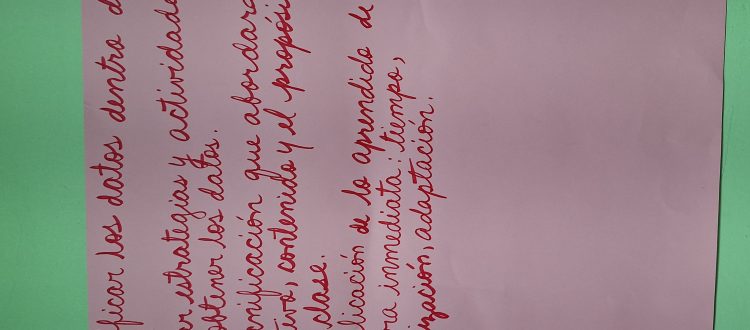 ficar los datos dentro d
ar estrategias y actividade
obtener los datos.
anificación que abordar
tivo, contenido y el propósi
clase.
licación de lo aprendido de
ra inmediata: tiempo,
ización, adaptación.